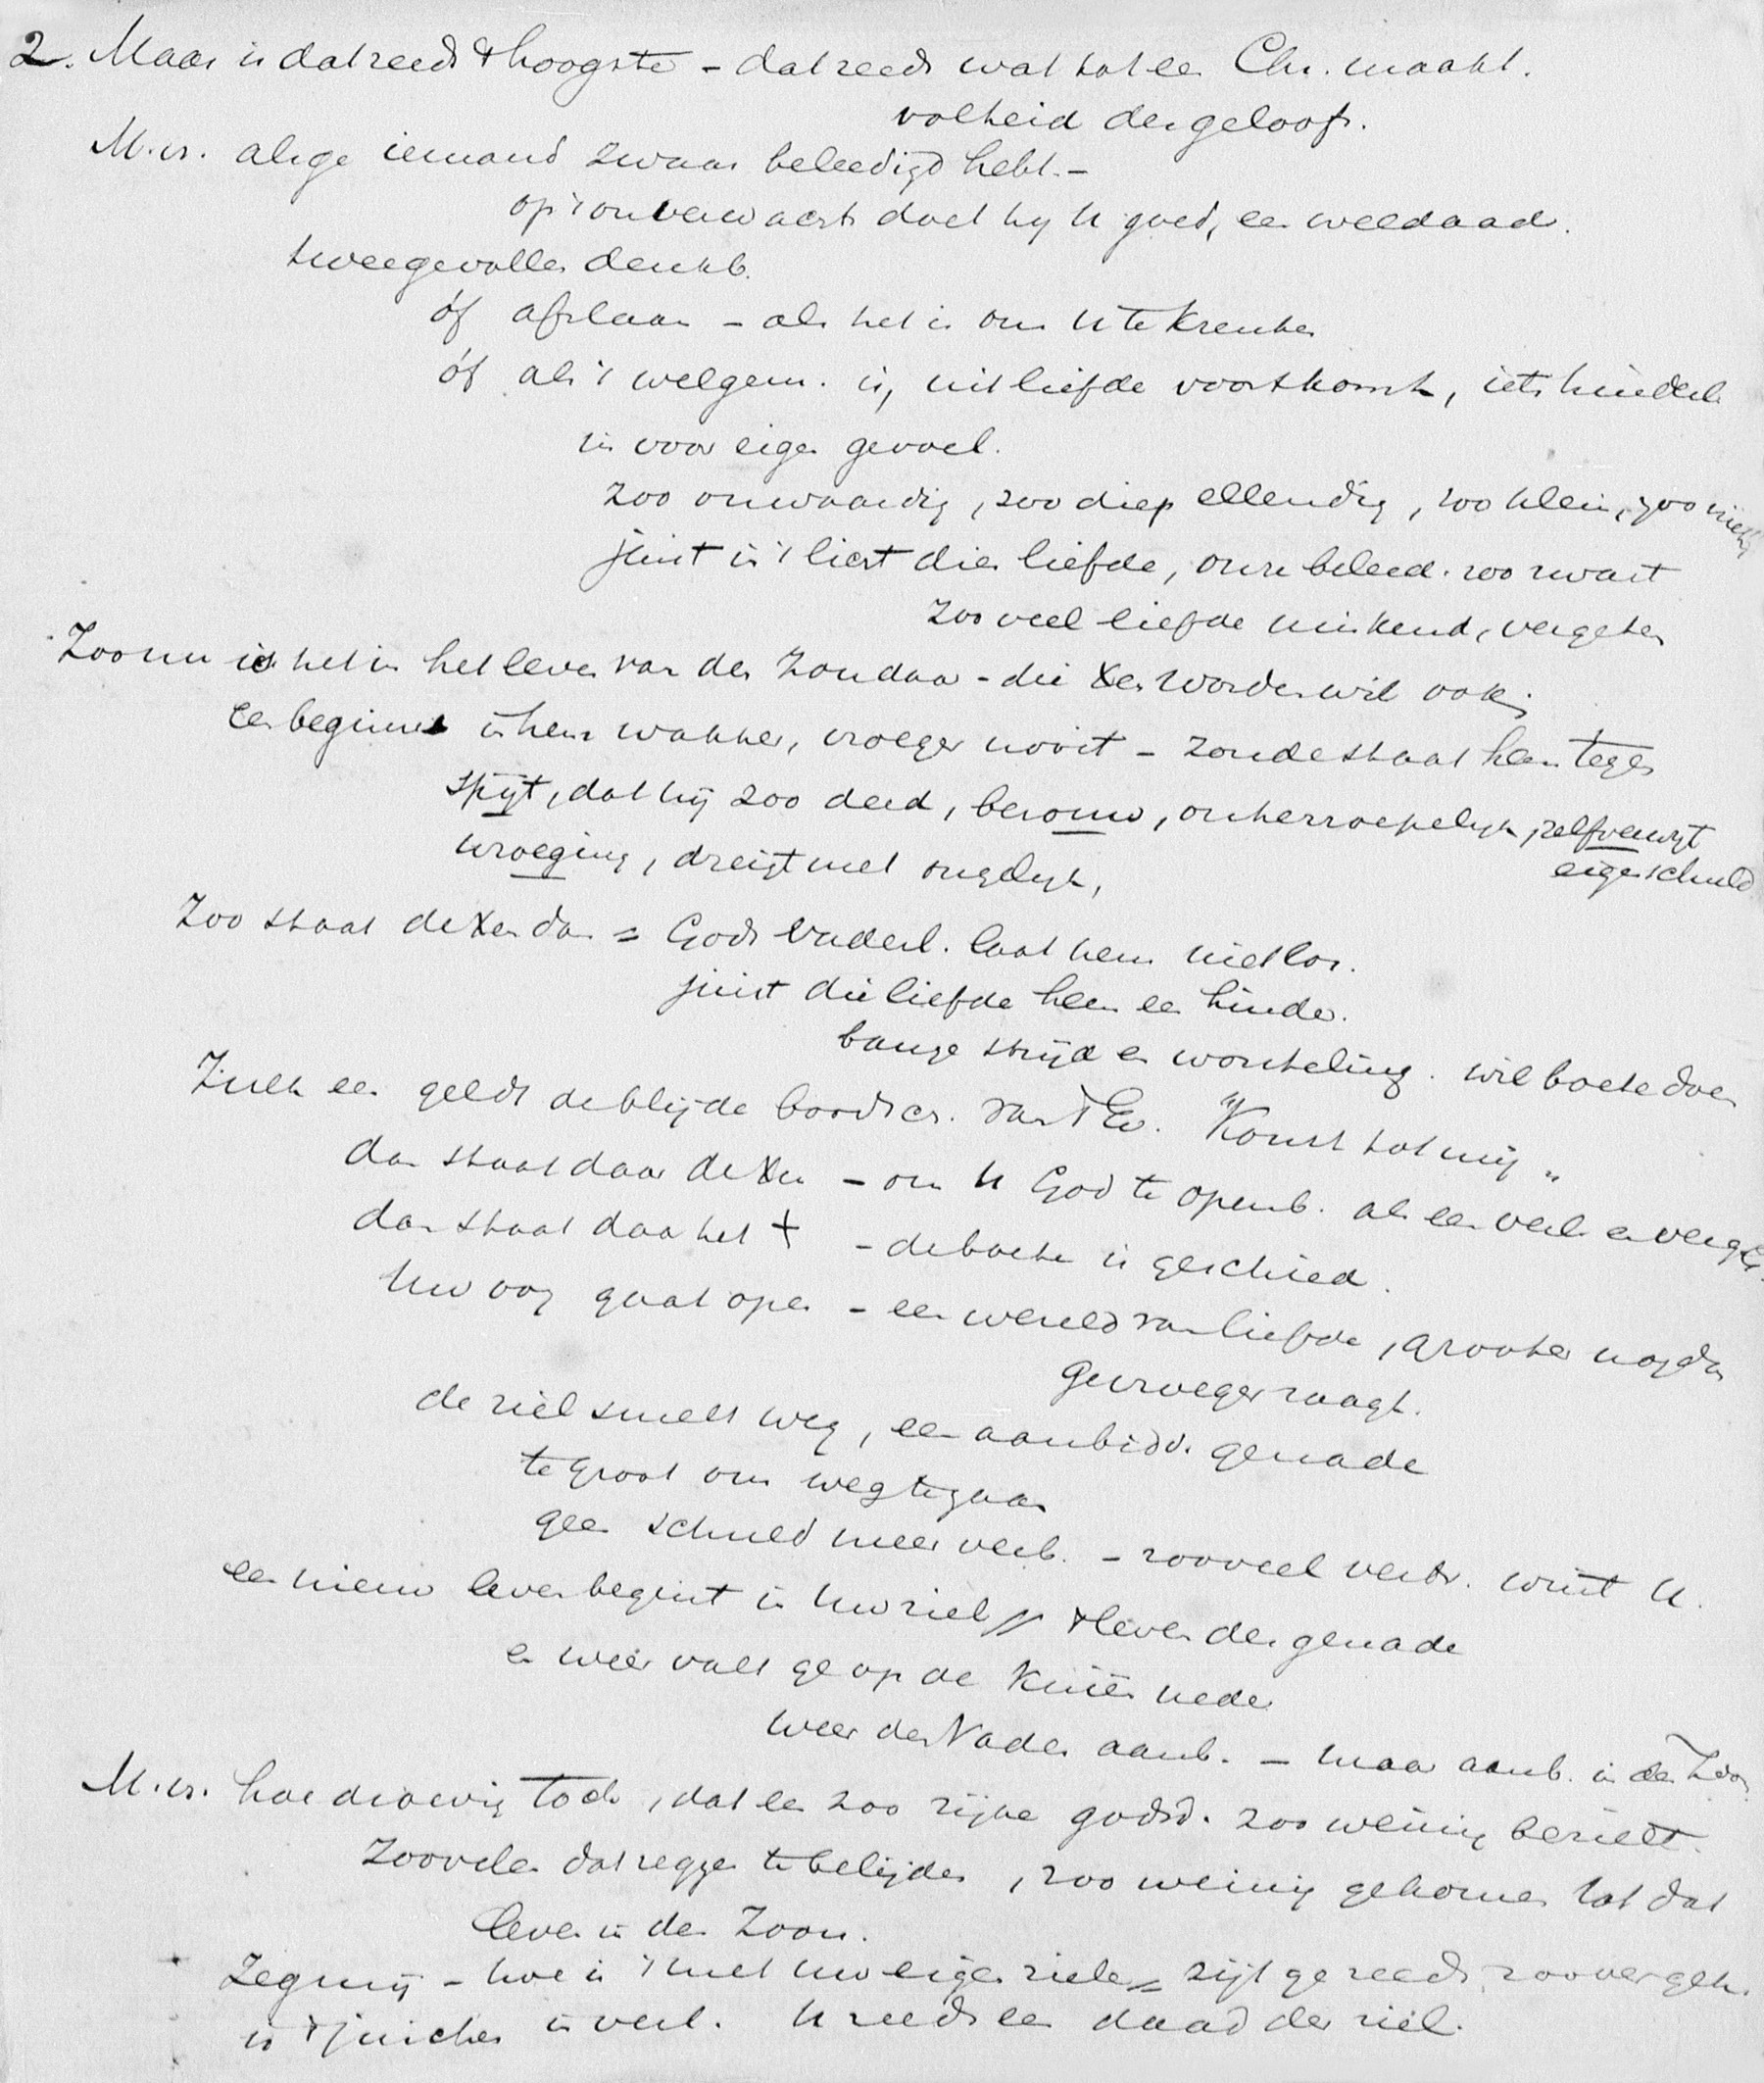 2. Maar is dat reeds 't hoogste – dat reeds wat tot een Chr. maakt.
volheid des geloofs.
M.vr. als ge iemand zwaar beleedigd hebt. –
op 't onverwachts doet hij U goed, een weldaad.
twee gevallen denkb.
óf afslaan – als het is om U te krenken
óf als 't welgem. is, uit liefde voortkomt, iets hinderl.
in voor eigen gevoel.
zoo onwaardig, zoo diep ellendig, zoo klein, zoo nietig
juist in 't licht dier liefde, onze beleed. zoo zwart
zooveel liefde miskend, vergeten
Zoo nu is het in het leven van den zondaar – die Xen worden wil ook
een begin is hem wakker, vroeger nooit – zonde staat hem tegen
spijt, dat hij zoo deed, berouw, onherroepelijk, zelfverwijt
eigen schuld
wroeging, dreigt met ongeluk,
Zoo staat de Xen dan = Gods Vaderl. laat hem niet los.
juist die liefde hem een hinder.
bange strijd en worsteling. wil boete doen
Zulk een geldt de blijde boodsch. van 't Ev. "Komt tot mij"
dan staat daar de Xus – om U God te openb. als een veel en vergev.
dan staat daar het + – de boete is geschied.
Uw oog gaat open – een wereld van liefde, grooter nog dan
ge vroeger zaagt.
de ziel smelt weg, een aanbidd. genade
te groot om weg te gaan
geen schuld meer verb. – zooveel vertr. wint U.
een nieuw leven begint in Uw ziel // 't leven der genade
en weer valt ge op de knieën neder
weer den Vader aanb. – maar aanb. in den Zoon
M.vr. hoe droevig toch, dat een zoo rijke godsd. zoo weinig bezielt.
Zoovelen dat zeggen te belijden, zoo weinig gekomen tot dat
leven in den Zoon.
Zeg mij – hoe is 't met uw eigen ziele = zijt ge reeds zoover gek.
is 't juichen in verl. U reeds een daad der ziel.